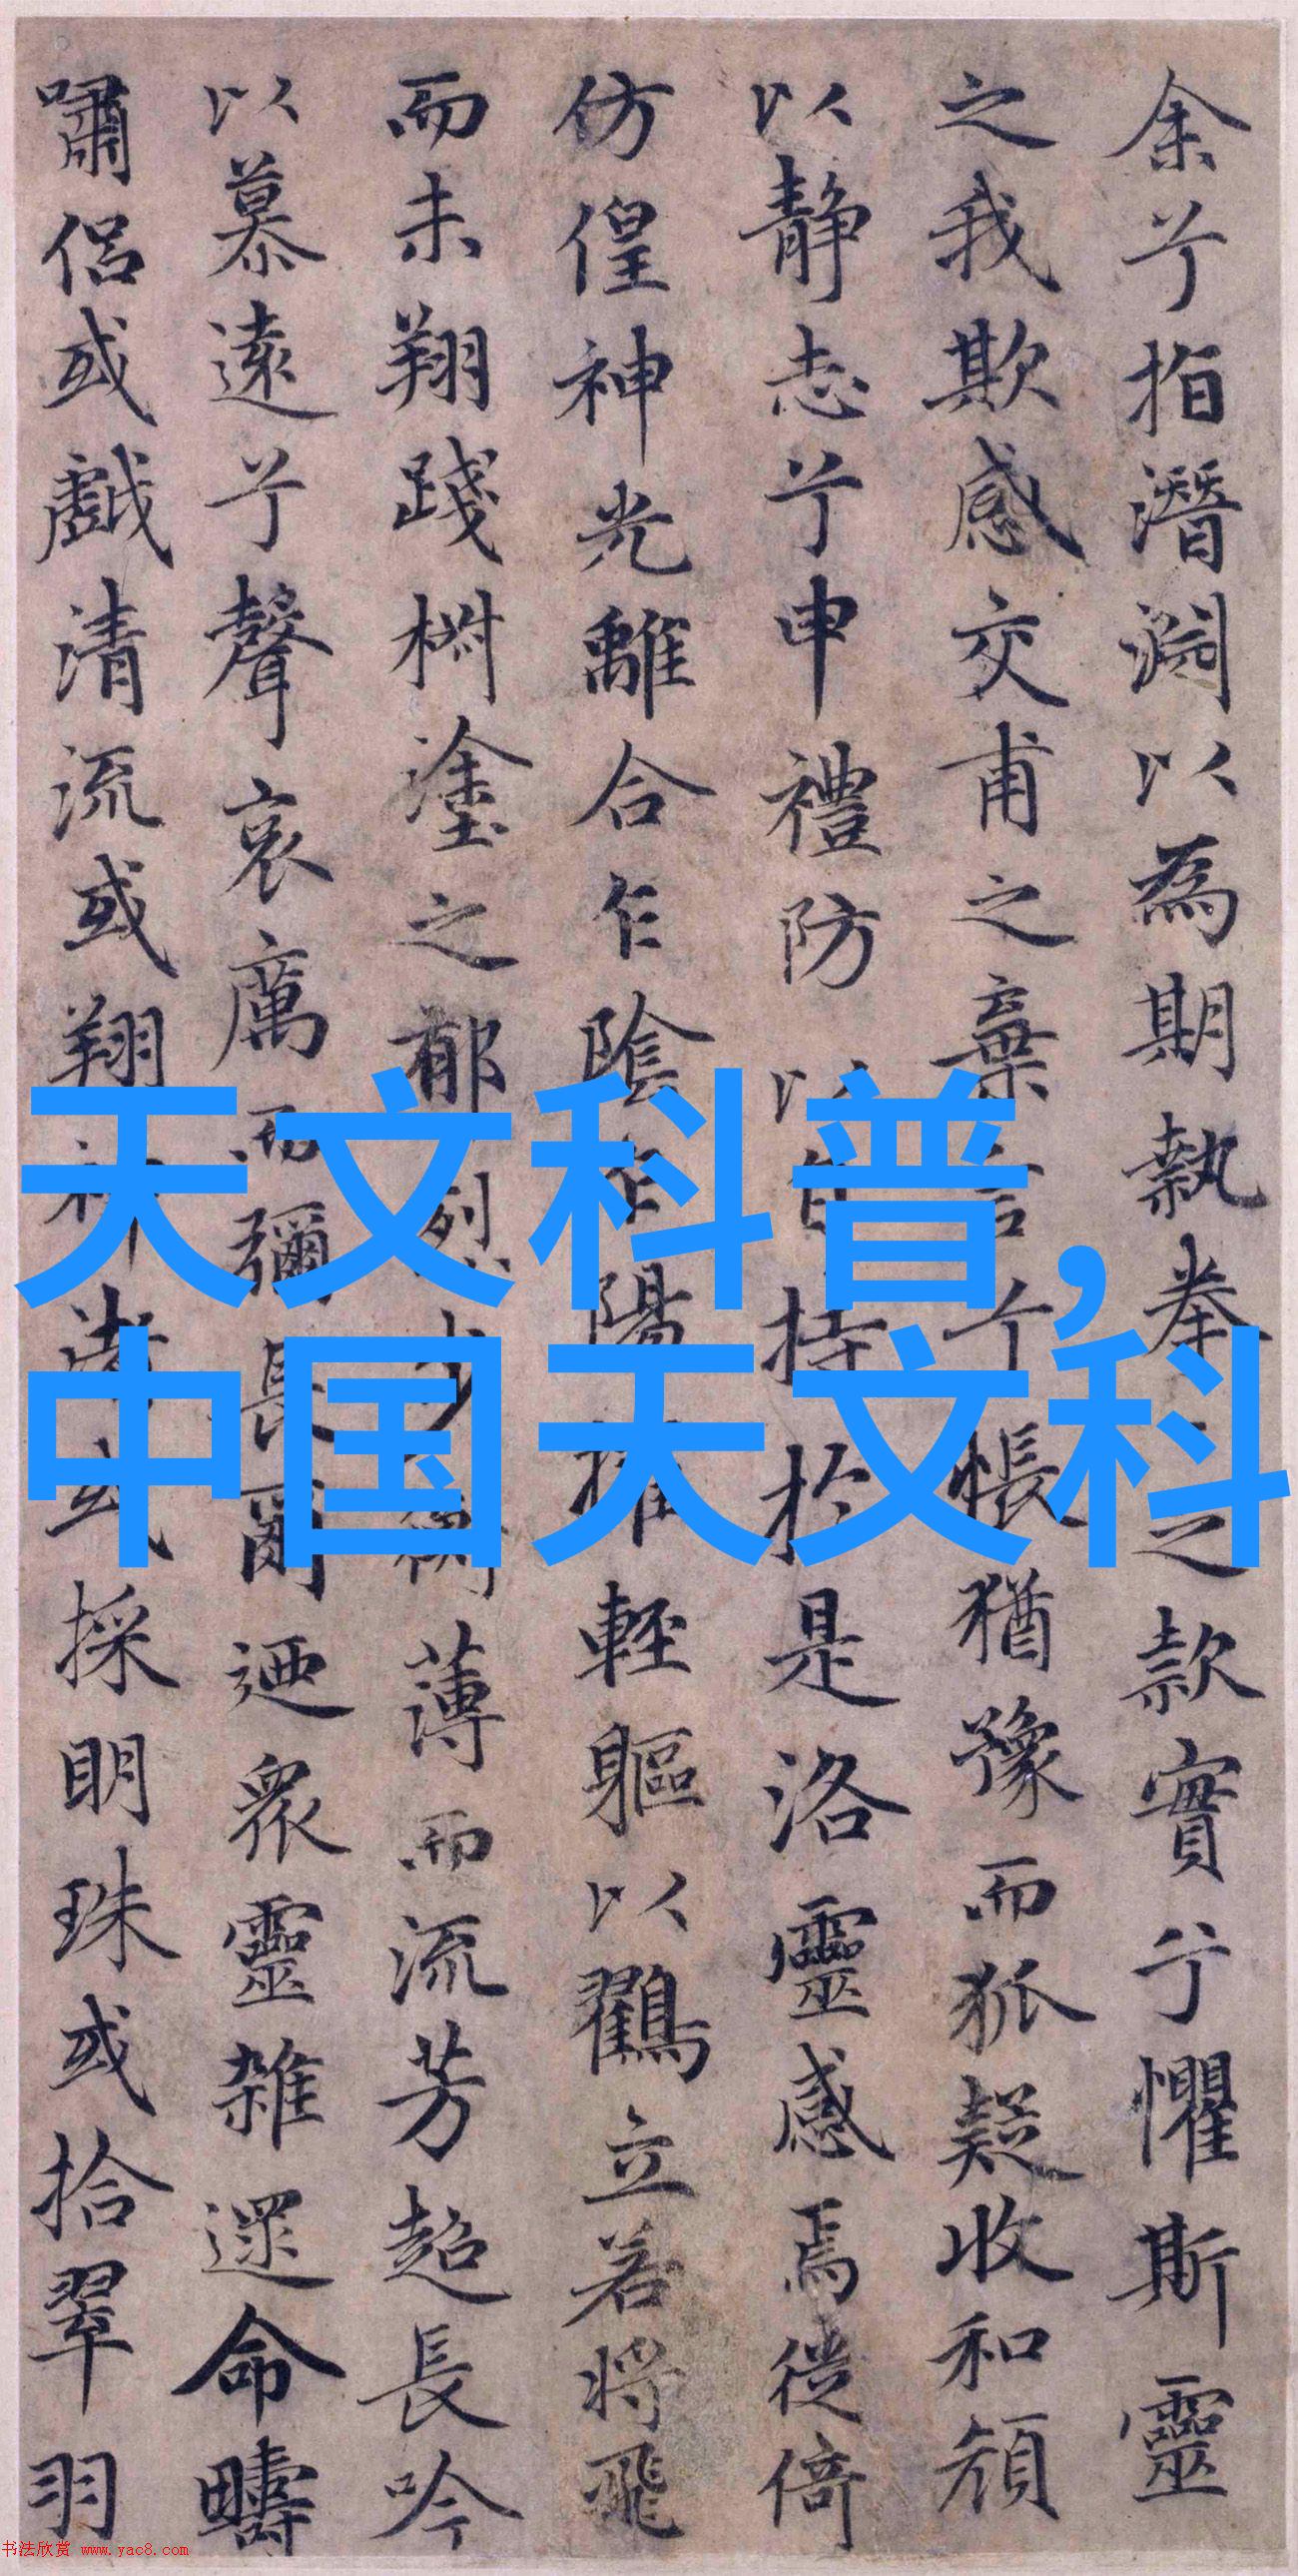 天文科普,
中国天文科
余兮指潛淵以為期執拳之款實兮懼斯靈
之我欺感交甫之棄言兮悵猶豫而狐疑收和顏
以靜志兮申禮防以自持於是洛靈感焉徙倚
仿偟神光離合乍陰乍陽擢輕軀以鶴立若將飛
而未翔踐椒塗之郁烈步蘅薄而流芳超長吟
以慕遠兮聲哀厲而彌長爾迺眾靈雜遝命疇
嘯侶或戲清流或翔神渚或採明珠或拾翠羽
书法欣赏 www.yac8.com